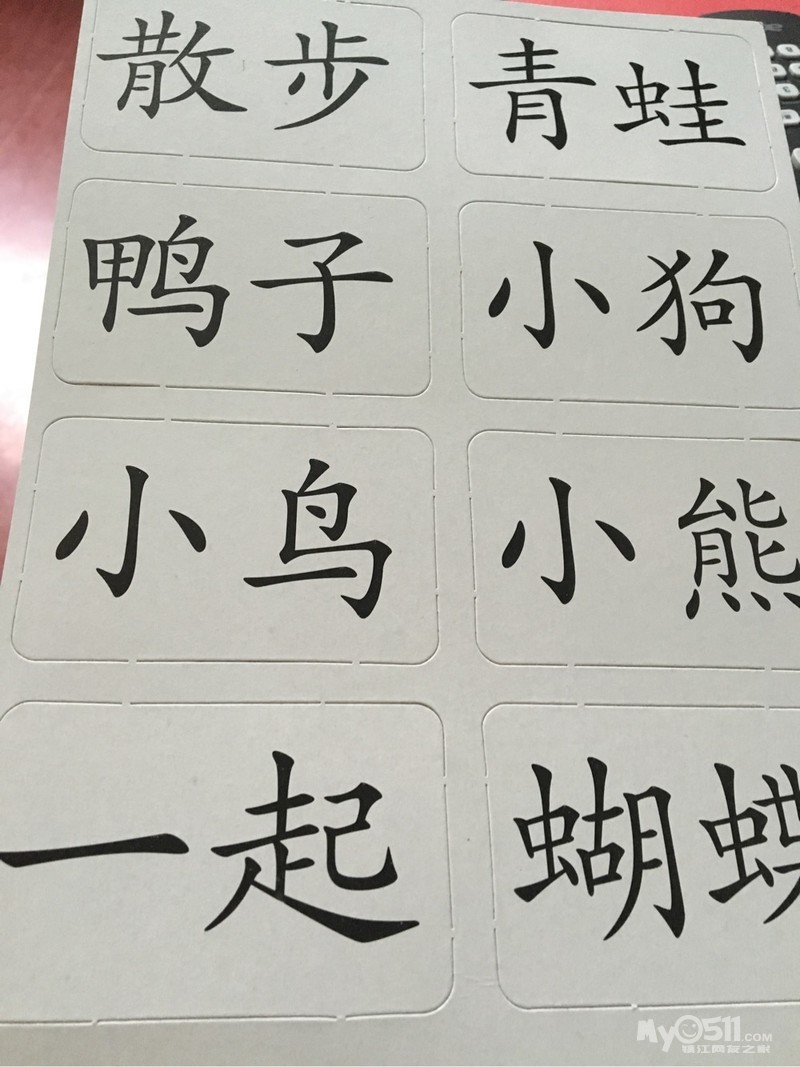 散步 青蛙
鸭子 小狗
小鸟 小熊
一起 蝴蝶
My0511.COM
镇江网友之家